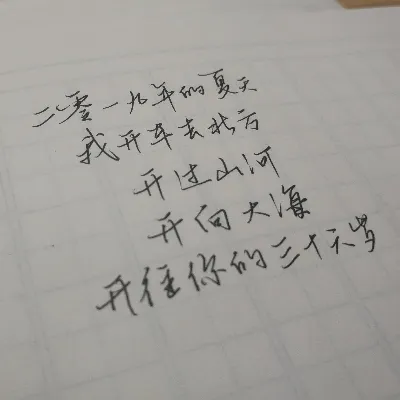 二零一九年的夏天
我开车去北方
开过山河
开向大海
开往你的三十六岁